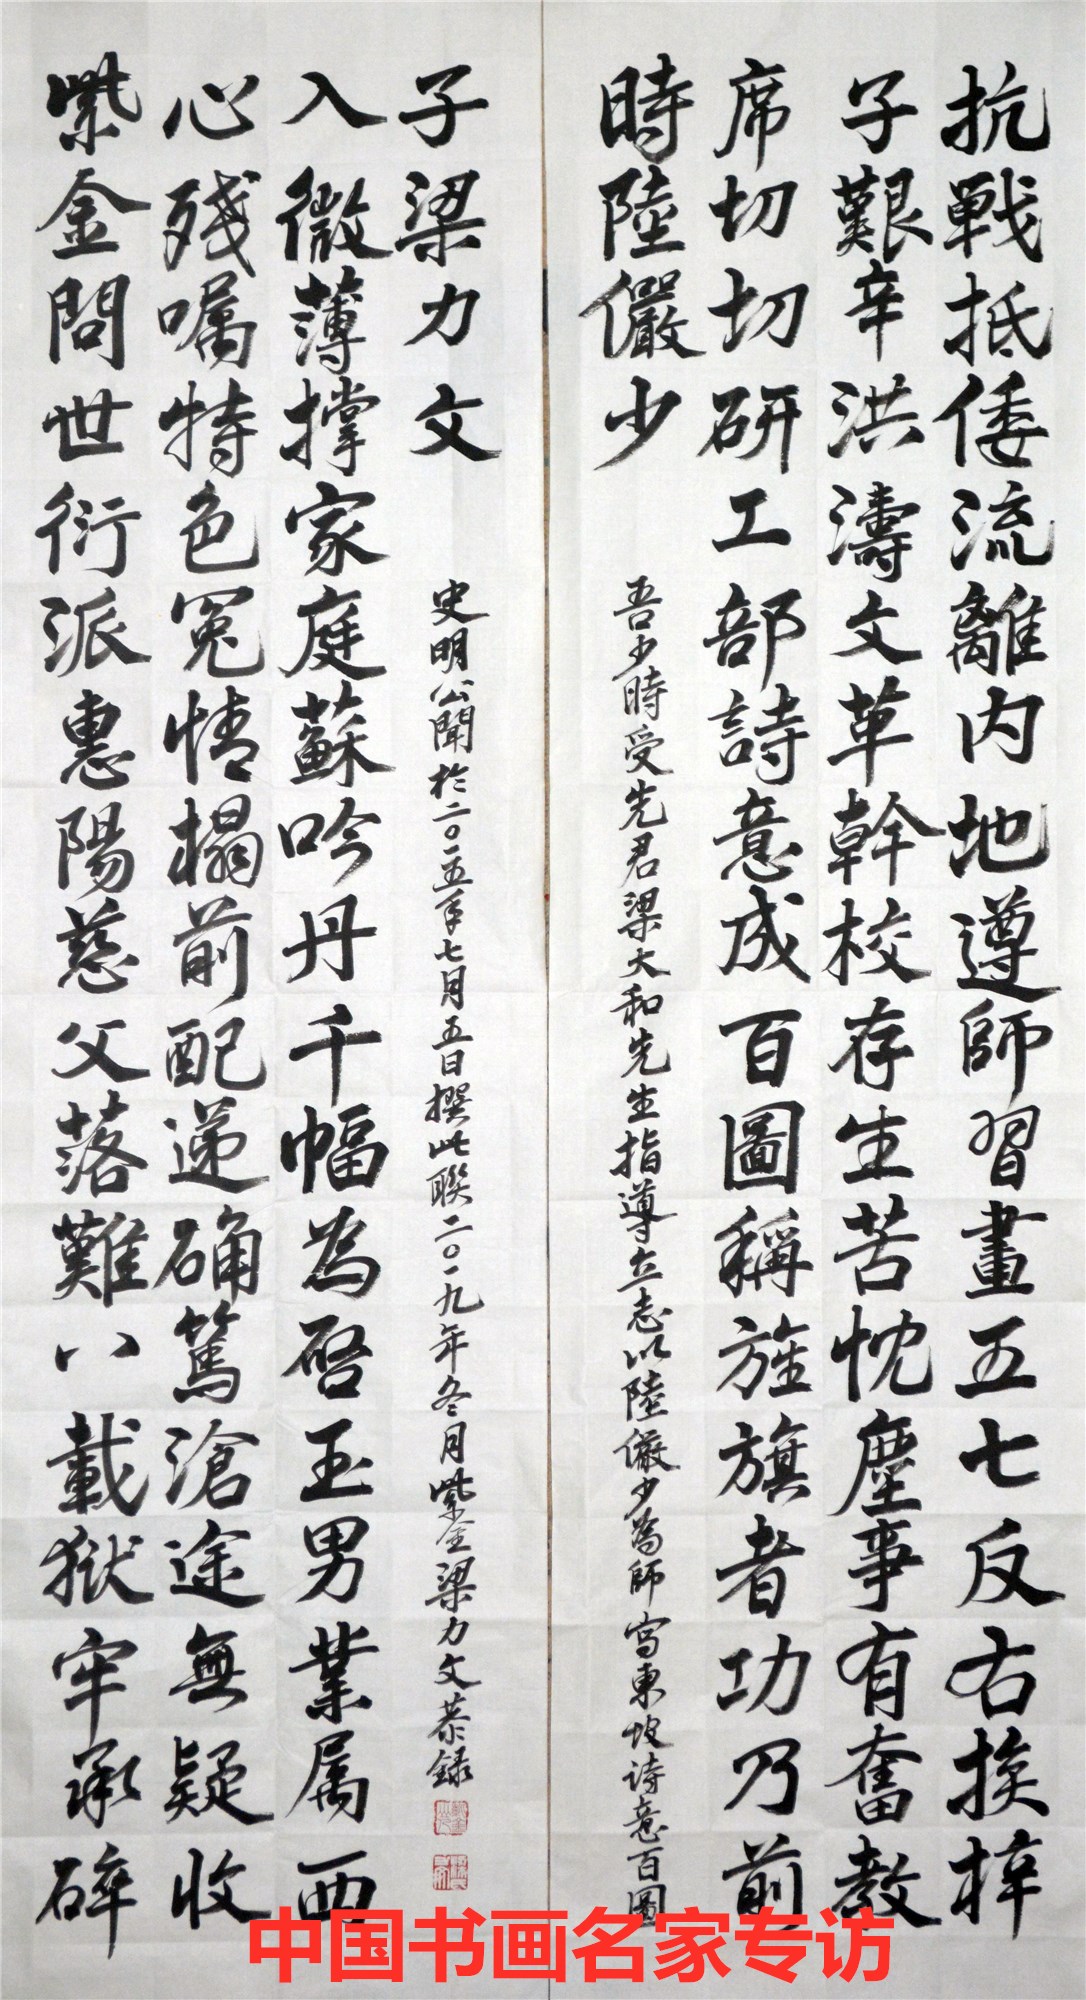 抗戰抵倭流離内地遵師習畫五七反右挨梓
子艱辛洪濤文革幹校存生苦忱塵事有奮教
席切切研工部詩意成百圖稱旌旗者功乃前
時陸儼少
吾少時受先君梁大和先生指導立志以陸儼少為師写東坡诗意百圖
紫金問世衍派惠陽慈父落難八載獄牢承碎
心残嘱特色冤情榻前配递确篤滄途無疑收
入微薄撑家庭蘇吟丹千幅為啓玉男業属西
子梁力文
史明公聞於二〇一五年七月五日撰此聯二〇一九年冬月紫金梁力文恭録
中国书画名家专访